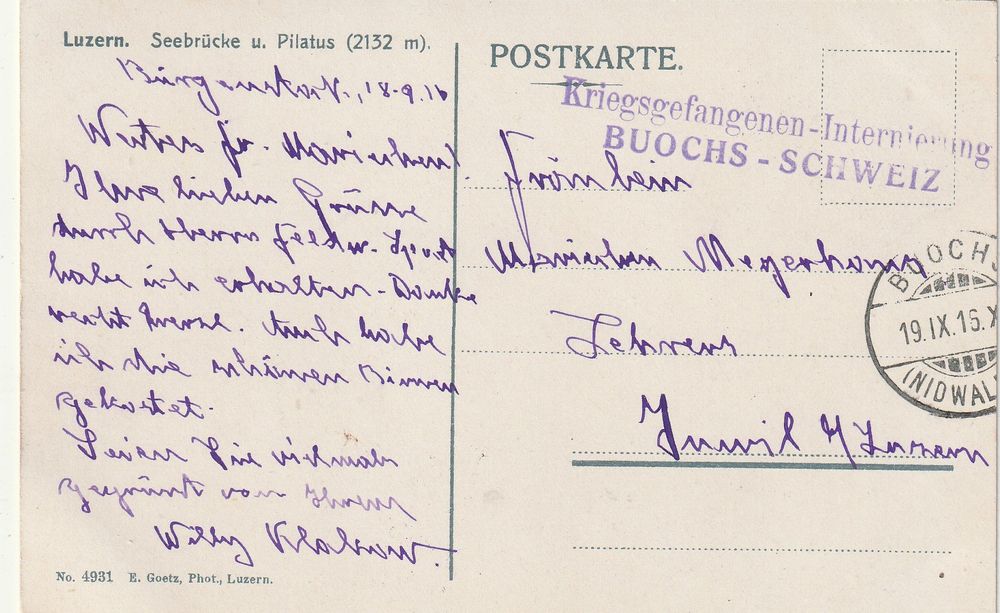 Luzern. Seebrücke u. Pilatus (2132 m).
Bürgenstock, 18.9.16
Wertes frl. Mariechen!
Ihre lieben Grüsse
durch Herrn Feldw.
habe ich erhalten. Danke
recht herzl. Auch habe
ich die schönen Birnen
gekostet.
Seien Sie vielmals
gegrüsst von Ihrem
Willy
No. 4931 E. Goetz, Phot., Luzern.
POSTKARTE.
Kriegsgefangenen-Internierung
BUOCHS - SCHWEIZ
Fräulein
Mariechen Meyerhans
Lehrers
Inwil b/Luzern
BUOCHS
19.IX.16.X
(NIDWAL